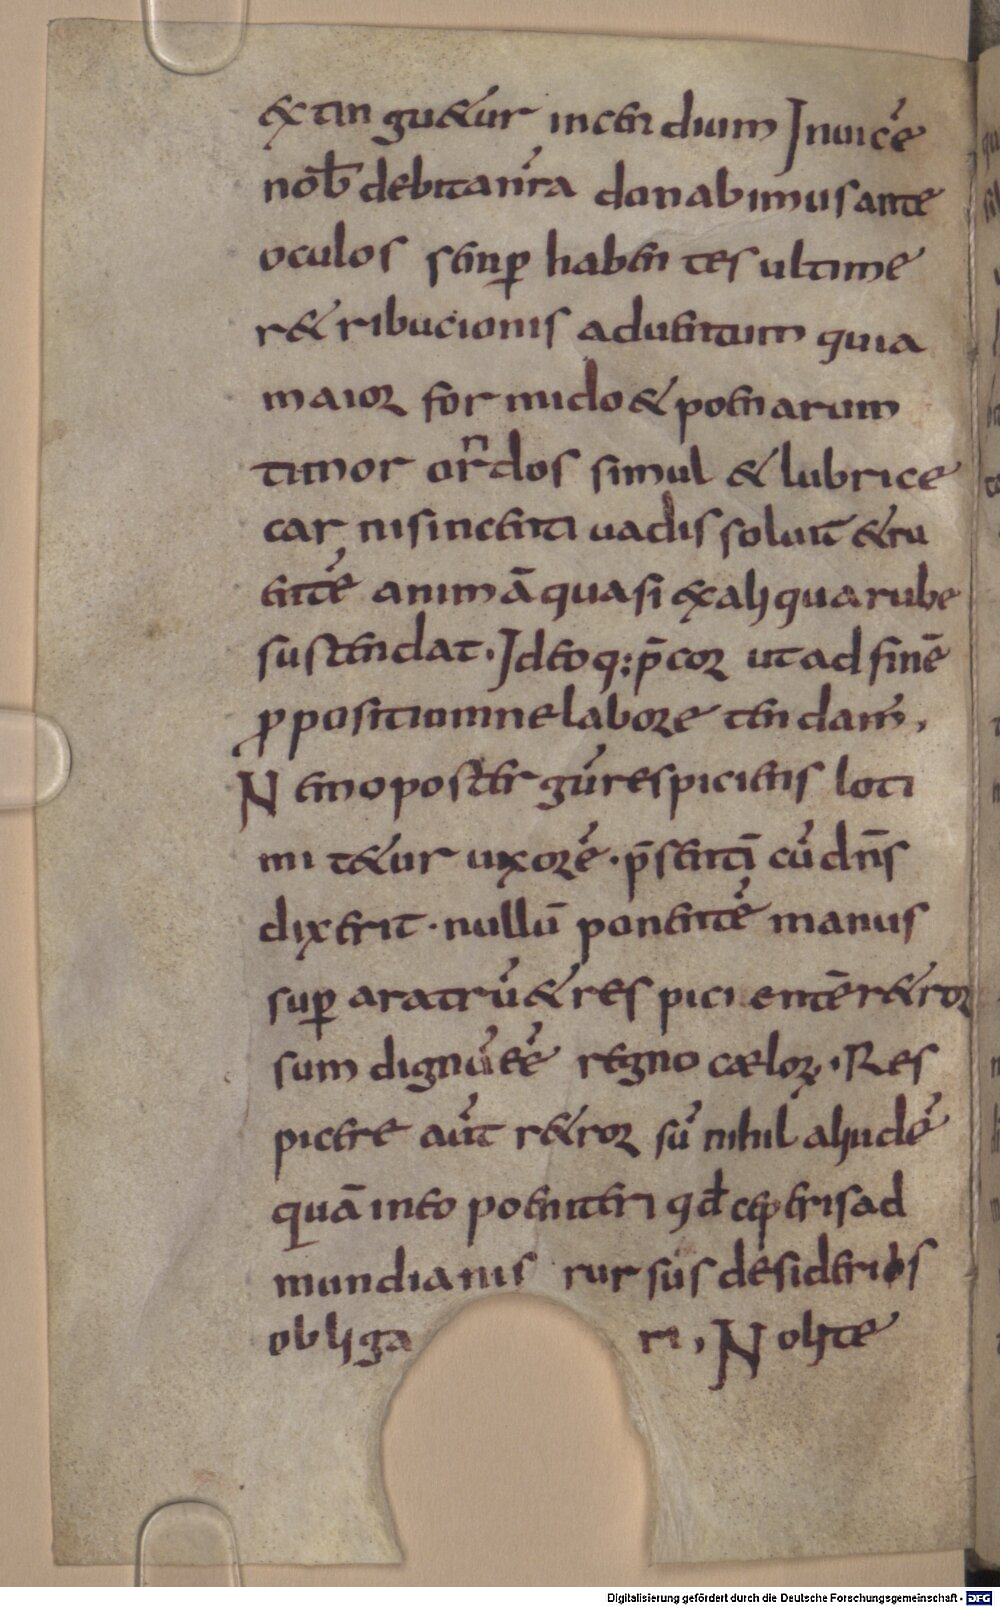 extinguetur incendium Inuicē
nob̄ debita nr̄a donabimus ante
oculos semp̲ habentes ultime
retribucionis aduentum quia
maior formido & poenarum
timor orrn̄dos simul & lubrice
carnis incentiua dissoluit & ru
entē animā quasi ex aliqua rube
sustendat. Ideoq: p̄cor ut ad finē
ꝓpositi omne labore tendam̄,
Nemo post tergū respiciens loti
mitetur uxorē. p̄sertī cū dn̄s
dixerit. nullū ponentē manus
sup̲ aratrū & respicientē retror
sum dignū eē regno cælorꝝ. Res
picere aūt retror sū nihil aliud ē
quā in eo poeniteri qd̄ ceperis ad
mundianis rursus desideriis
obligari, Nolite
Digitalisierung gefördert durch die Deutsche Forschungsgemeinschaft - DFG